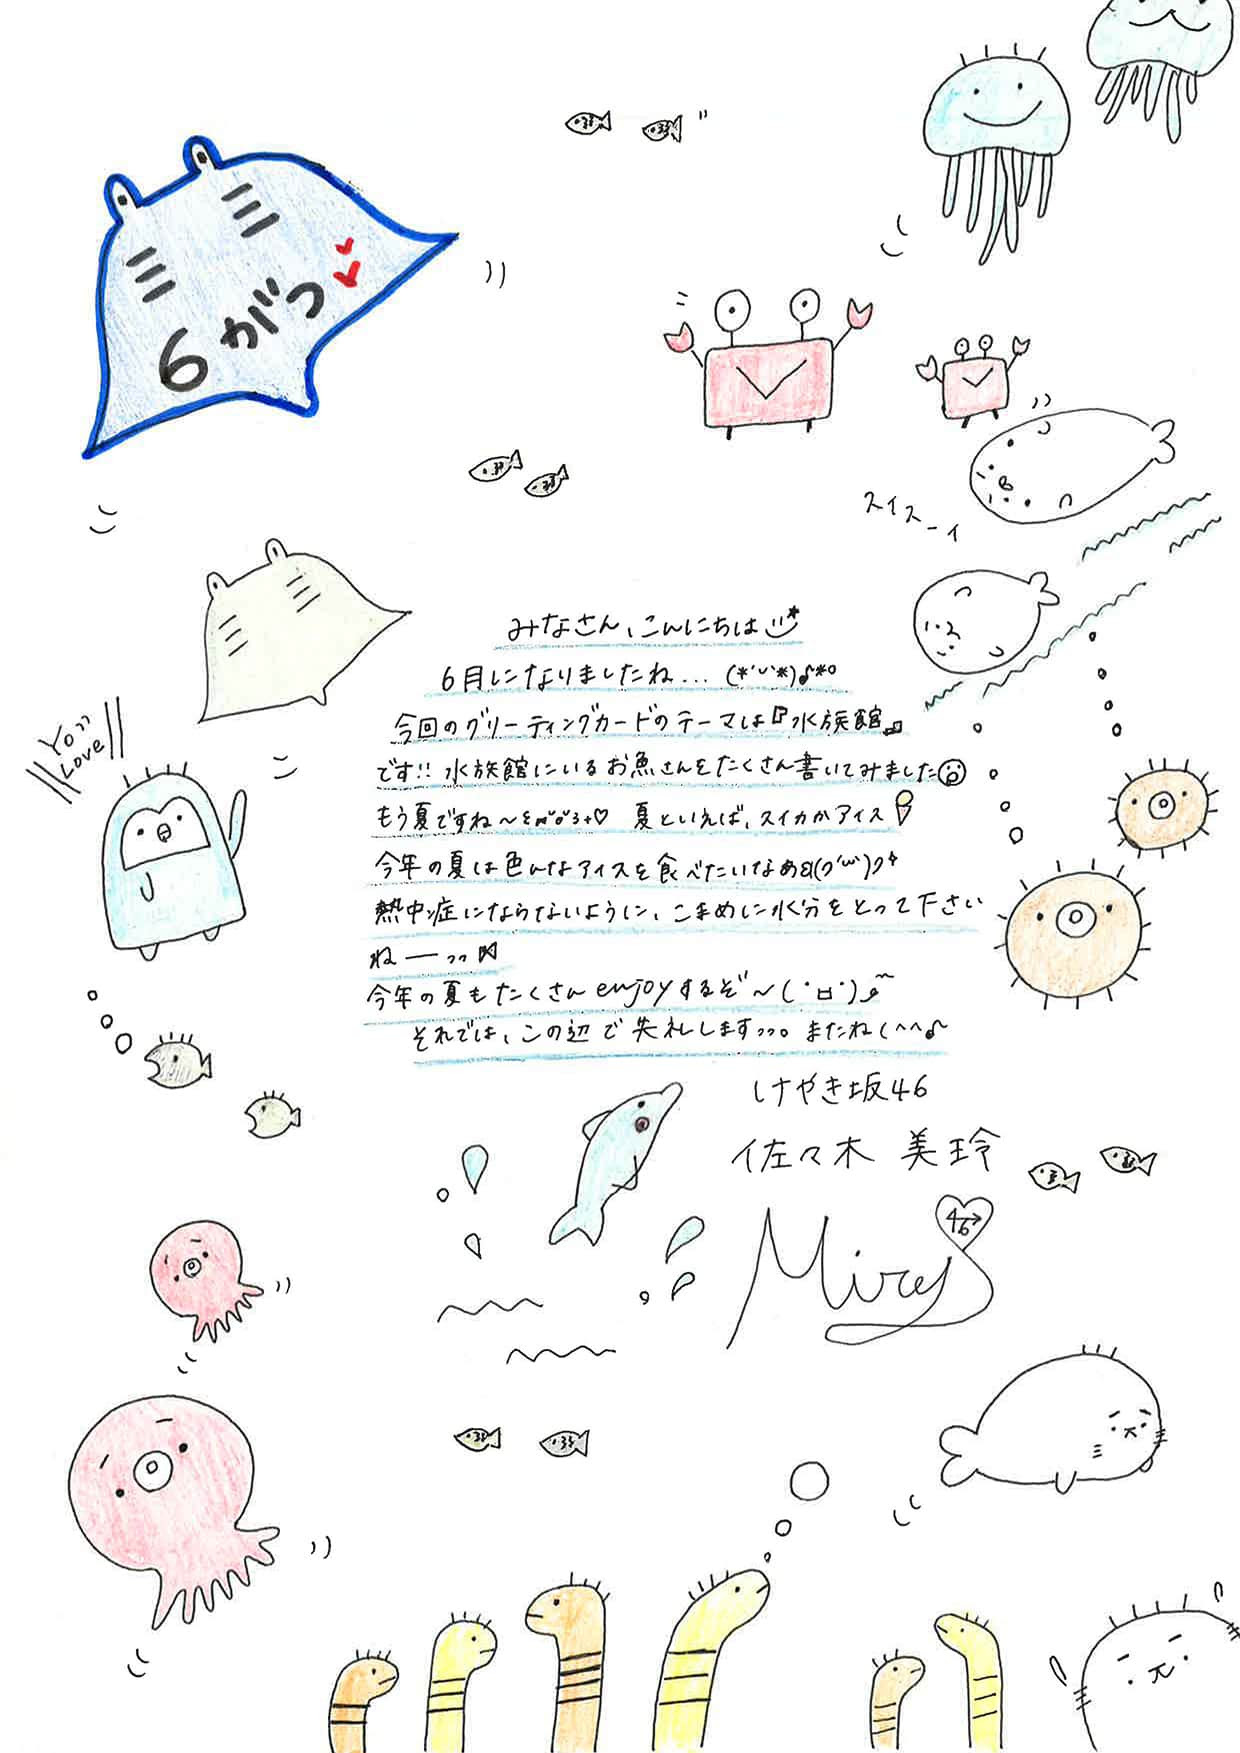 6がつ
スイスーイ
みなさん、こんにちは
6月になりましたね... (*˙ᵕ˙*)♪*°
今回のグリーティングカードのテーマは『水族館』
です!! 水族館にいるお魚さんをたくさん書いてみました
もう夏ですね〜 ♡ 夏といえば、スイカかアイス
今年の夏は色んなアイスを食べたいなぁ
熱中症にならないように、こまめに水分をとって下さい
ね ー ッッ
今年の夏もたくさんenjoyするぞ〜(˙ロ˙)
それでは、この辺で失礼しますっっ。またね(^^♪
YO!!
Love
けやき坂46
佐々木 美玲
Mirei
46